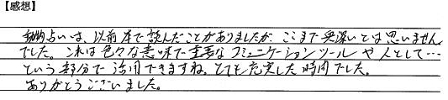 【感想】
動物占いは、以前本で読んだことがありましたが、ここまで奥深いとは思いません
でした。これは色々な意味で重要なコミュニケーションツールや人として…
という部分で活用できますね。とても充実した時間でした。
ありがとうございました。